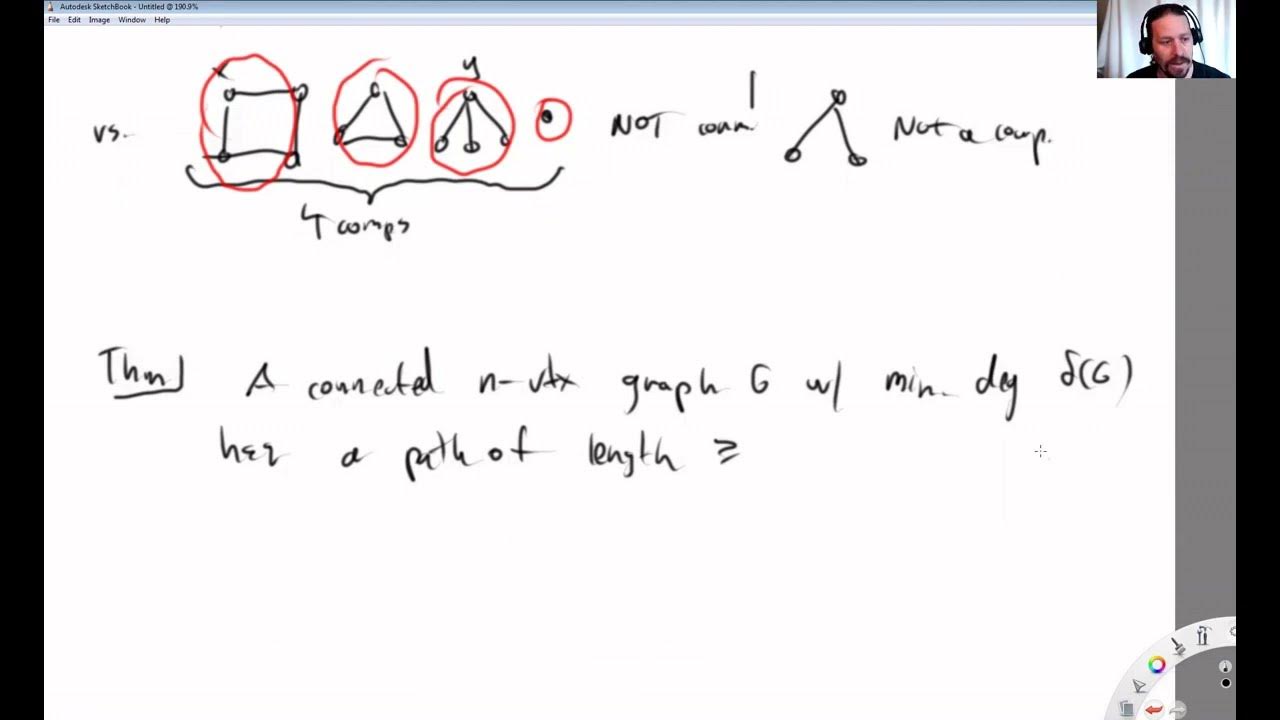 Autodesk SketchBook - Untitled @ 190.9%
File Edit Image Window Help
x y
vs. NOT conn. Not a comp.
4 comps
Thm) A connected n-vtx graph G w/ min. deg δ(G)
has a path of length ≥